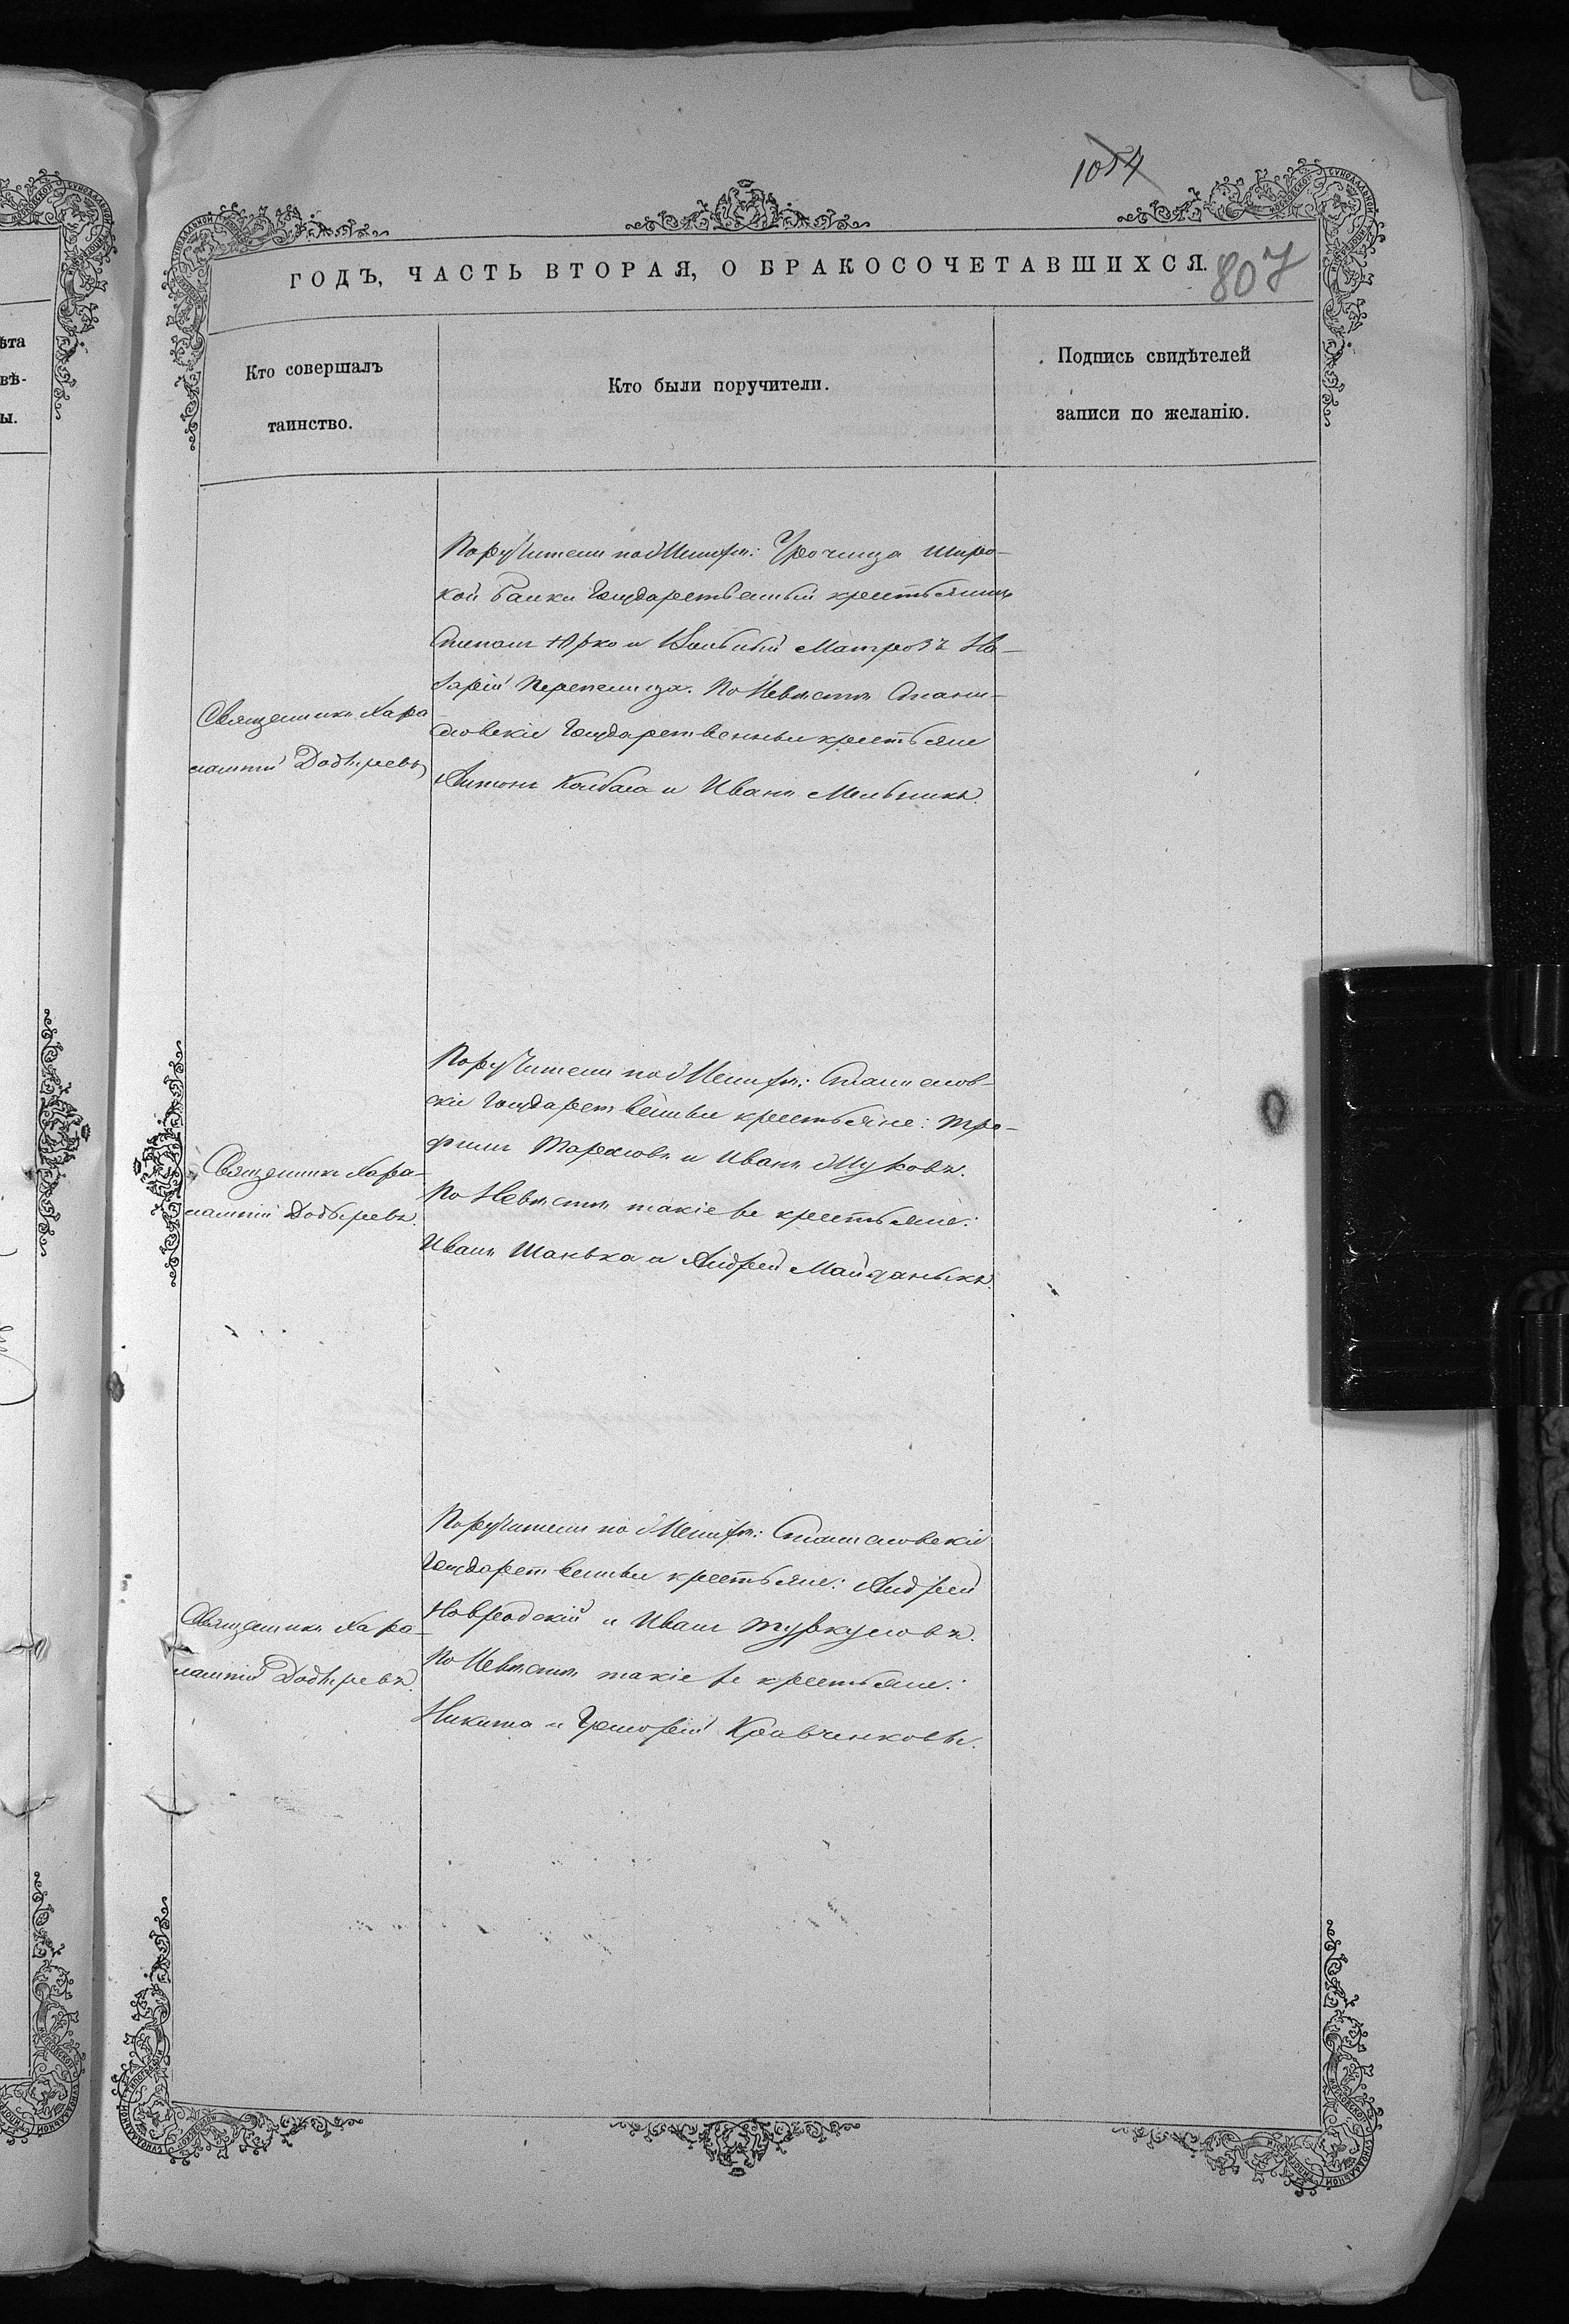 1054
807
ГОДЪ, ЧАСТЬ ВТОРАЯ, О БРАКОСОЧЕТАВШИХСЯ.
Кто совершалъ
таинство.
Кто были поручители.
Подпись свидѣтелей
записи по желанію.
Священникъ Хара
лампій
Поручители по Женихѣ: Урочища Широ-
кой Балки Государственный крестьянинъ
Степанъ Юрко и Вольный Матрозъ На-
зарій Перепелица. По Невѣстѣ Стани-
словскіе Государственные крестьяне
Антонъ Колбаса и Иванъ Мельникъ.
Священникъ Хара-
лампій
Поручители по Женихѣ: Станислов-
скіе Государственные крестьяне: Тро-
фимъ и Иванъ Жуковъ.
По Невѣстѣ такіе же крестьяне:
Иванъ Шанька и Андрей Майданыкъ.
Священникъ Хара-
лампій
Поручители по Женихѣ: Станиславскіе
Государственные крестьяне: Андрей
Навродскій и Иванъ Туркуловъ.
По Невѣстѣ такіе же крестьяне:
Никита и Григорій Кравченковы.
ѣта
вѣ-
ы.